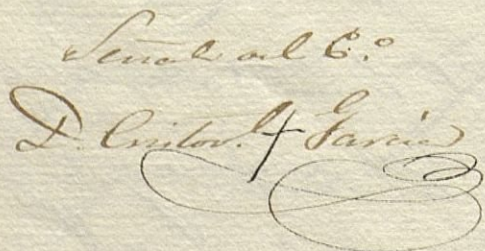 Señal del C.º
D. Cristov.l + Garcia